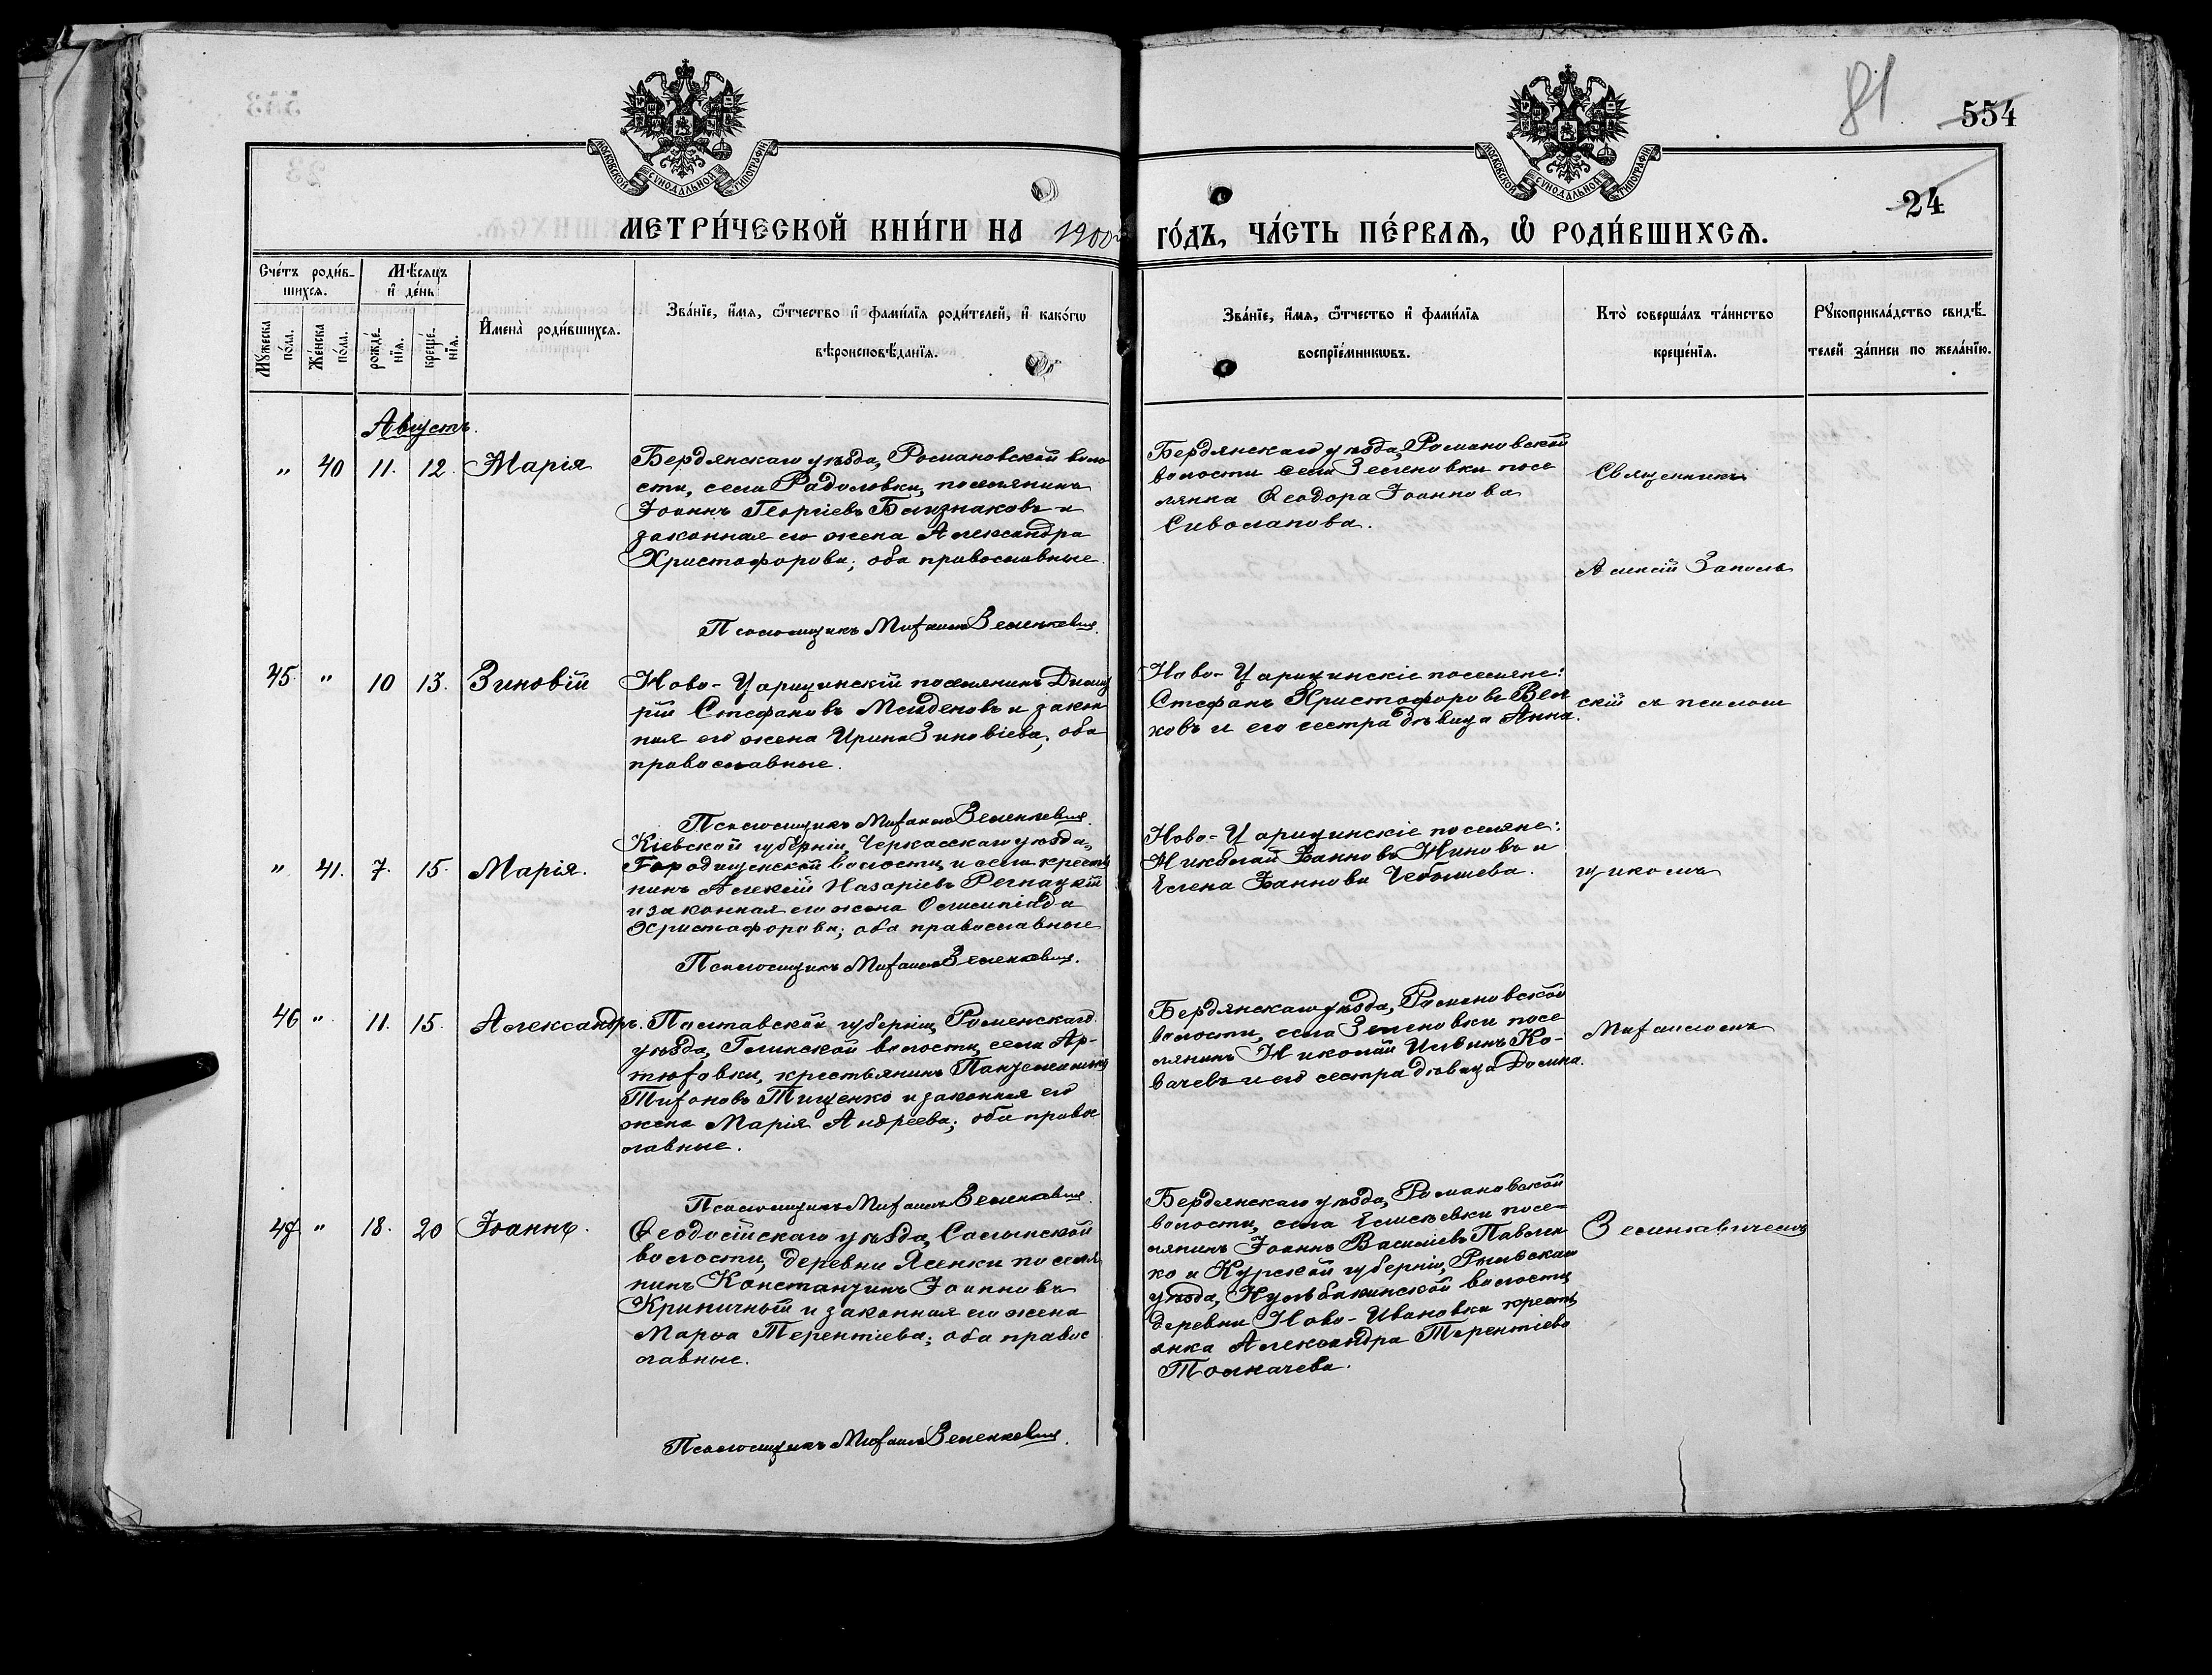 81
554
24
МОСКОВСКОЙ СѴНОДАЛЬНОЙ ТИПОГРАФІИ
МОСКОВСКОЙ СѴНОДАЛЬНОЙ ТИПОГРАФІИ
МЕТРИ́ЧЕСКОЙ КНИ́ГИ НА 1900й ГО́ДЪ, ЧА́СТЬ ПЕ́РВАѦ, Ѡ РОДИ́ВШИХСѦ.
Сче́тъ роди́в-
шихсѧ.
Мꙋ́жеска
по́ла.
Же́нска
по́ла.
Мѣ́сѧцъ
и҆ де́нь
рожде́-
нїѧ.
креще́-
нїѧ.
И҆мена̀ роди́вшихсѧ.
Зва́нїе, и҆́мѧ, ѻ҆́тчество и҆ фами́лїѧ роди́телей, и҆ како́гѡ
вѣроисповѣ́данїѧ.
Зва́нїе, и҆́мѧ, ѻ҆́тчество и҆ фами́лїѧ
воспрїе́мникѡвъ.
Кто̀ соверша́лъ та́инство
креще́нїѧ.
Рꙋкоприкла́дство свидѣ́-
телей за́писи по жела́нїю.
Августъ.
" 40 11. 12. Марія
Бердянскаго уѣзда, Романовской воло
сти, села Радоловки, поселянинъ
Іоаннъ Георгіевъ Близнаковъ и
законная его жена Александра
Христофорова; оба православные.
Псаломщикъ Михаилъ Зеленкевичъ.
Бердянскаго уѣзда, Романовской
волости села Зеленовки посе
лянка Ѳеодора Іоаннова
Сиволапова.
Священникъ
Алексій Заполь
45. " 10 13. Зиновій
Ново-Царицинскій поселянинъ Димит
рій Стефановъ Мелденовъ и закон
ная его жена Ирина Зиновіева; оба
православные.
Псаломщикъ Михаилъ Зеленкевичъ.
Ново-Царицинскіе поселяне:
Стефанъ Христофоровъ Вел
ковъ и его сестра дѣвица Анна.
скій съ псалом
" 41. 7. 15. Марія.
Кіевской губерніи, Черкасскаго уѣзда,
Городищенской волости и села кресть
нинъ Алексій Назаріевъ
и законная его жена Олимпіада
Христофорова; оба православные
Псаломщикъ Михаилъ Зеленкевичъ.
Ново-Царицинскіе поселяне:
Николай Іоанновъ Жиновъ и
Елена Іоаннова Чебышева.
щикомъ
46 " 11. 15. Александръ.
Полтавской губерніи, Роменскаго
уѣзда, Глинской волости, села Ар-
тюховки, крестьянинъ Пантелеимонъ
Тихоновъ Тищенко и законная его
жена Марія Андреева; оба правос
лавные.
Псаломщикъ Михаилъ Зеленкевичъ.
Бердянскаго уѣзда, Романовской
волости, села Зеленовки посе
лянинъ Николай Ильинъ Ко-
вачевъ и его сестра дѣвица Домна.
Михаиломъ
47 " 18. 20 Іоаннъ.
Ѳеодосійскаго уѣзда, Салынской
волости, деревни Ясенки поселя
нинъ Константинъ Іоанновъ
Криничный и законная его жена
Марѳа Терентіева; оба правос
лавные.
Псаломщикъ Михаилъ Зеленкевичъ.
Бердянскаго уѣзда, Романовской
волости, села Елисѣевки посе=
лянинъ Іоаннъ Василіевъ Павлен
ко и Курской губерніи, Рыльскаго
уѣзда, Кульбакинской волости,
деревни Ново-Ивановки кресть
янка Александра Терентіева
Толмачева.
Зеленкевичемъ